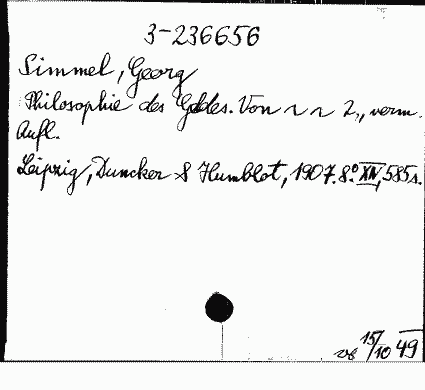 3-236656
Simmel, Georg
Philosophie des Geldes. Von ~ ~ 2., verm.
Aufl.
Leipzig, Duncker & Humblot, 1907. 8.° XIV, 585 s.
15/10 49